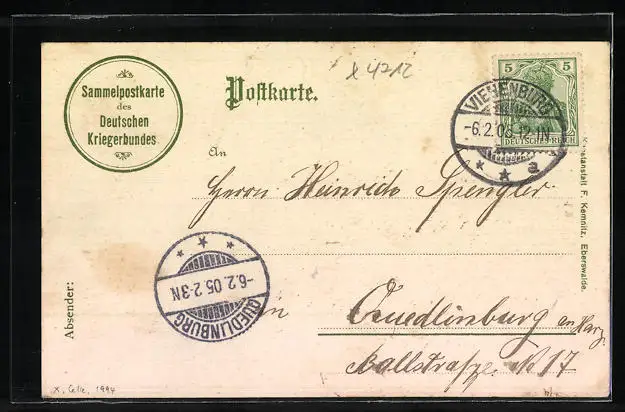 Sammelpostkarte
des
Deutschen
Kriegerbundes
Postkarte.
x 4212
5 5
DEUTSCHES REICH
VIENENBURG
-6.2.05.12-1N
* * a
An
Herrn Heinrich Spengler
in Quedlinburg am Harz.
Ballstraße No 17
QUEDLINBURG
-6.2.05 2-3N
* * *
Absender:
Kunstanstalt F. Kemnitz, Eberswalde.
x. Celle, 1994